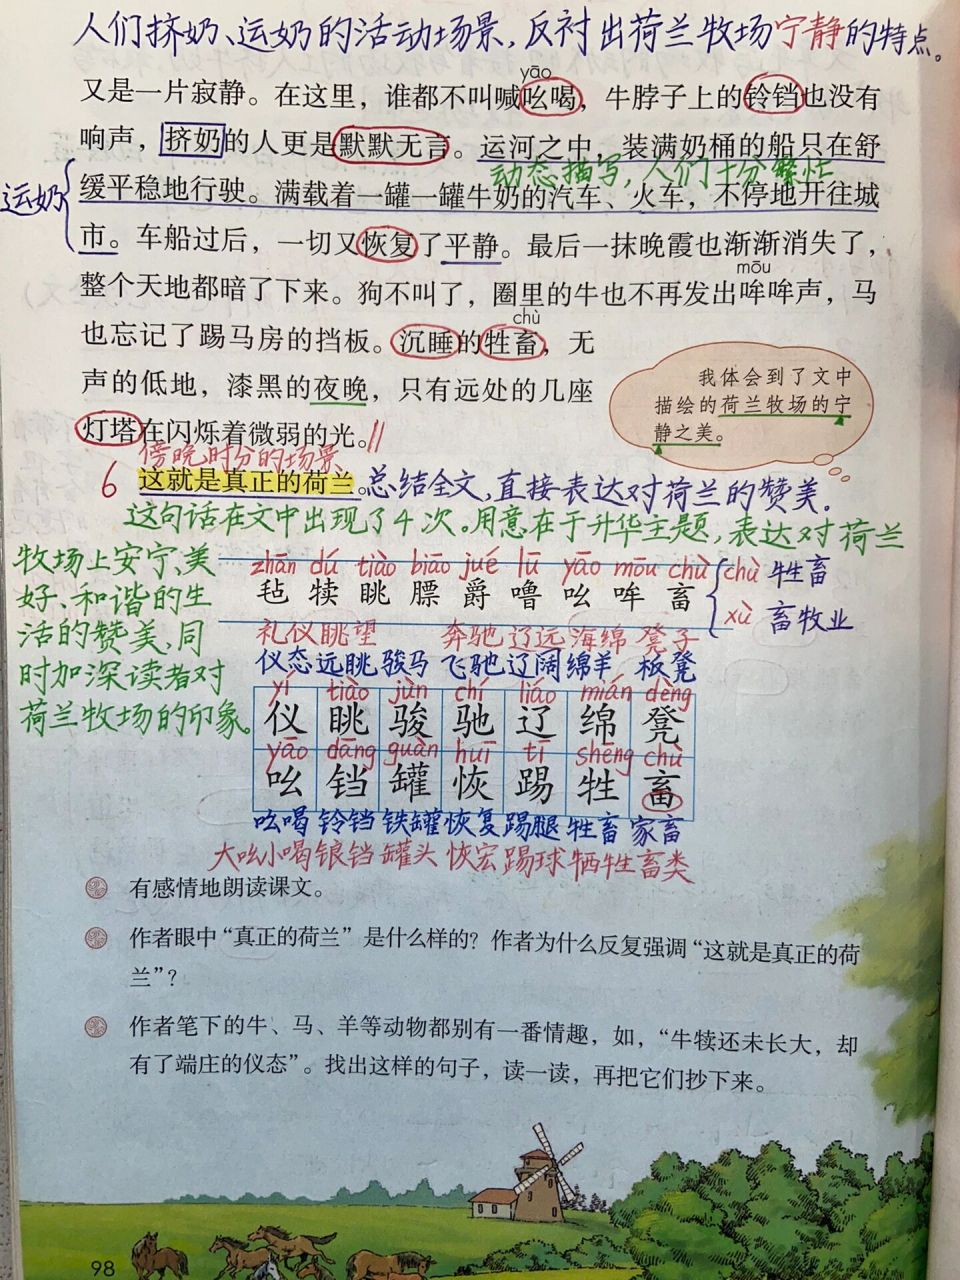 人们挤奶、运奶的活动场景，反衬出荷兰牧场宁静的特点。
yāo
又是一片寂静。在这里，谁都不叫喊吆喝，牛脖子上的铃铛也没有
响声，挤奶的人更是默默无言。运河之中，装满奶桶的船只在舒
动态描写，人们十分繁忙
运奶
缓平稳地行驶。满载着一罐一罐牛奶的汽车、火车，不停地开往城
市。车船过后，一切又恢复了平静。最后一抹晚霞也渐渐消失了，
mōu
整个天地都暗了下来。狗不叫了，圈里的牛也不再发出哞哞声，马
chù
也忘记了踢马房的挡板。沉睡的牲畜，无
声的低地，漆黑的夜晚，只有远处的几座
灯塔在闪烁着微弱的光。
我体会到了文中
描绘的荷兰牧场的宁
静之美。
傍晚时分的场景、
6 这就是真正的荷兰。总结全文，直接表达对荷兰的赞美。
这句话在文中出现了4次。用意在于升华主题，表达对荷兰
牧场上安宁、美
好、和谐的生
活的赞美，同
时加深读者对
荷兰牧场的印象。
zhān dú tiào biāo jué lū yāo mōu chù
毡 犊 眺 膘 爵 噜 吆 哞 畜
chù 牲畜
xù 畜牧业
礼仪 眺望 奔驰 辽远 海绵 凳子
仪态 远眺 骏马 飞驰 辽阔 绵羊 板凳
yí tiào jùn chí liáo mián dèng
仪 眺 骏 驰 辽 绵 凳
yāo dāng guàn huī tī shēng chù
吆 铛 罐 恢 踢 牲 畜
吆喝 铃铛 铁罐 恢复 踢腿 牲畜 家畜
大吆小喝 锒铛 罐头 恢宏 踢球 牺牲 畜类
有感情地朗读课文。
作者眼中“真正的荷兰”是什么样的？作者为什么反复强调“这就是真正的荷
兰”？
作者笔下的牛、马、羊等动物都别有一番情趣，如，“牛犊还未长大，却
有了端庄的仪态”。找出这样的句子，读一读，再把它们抄下来。
98